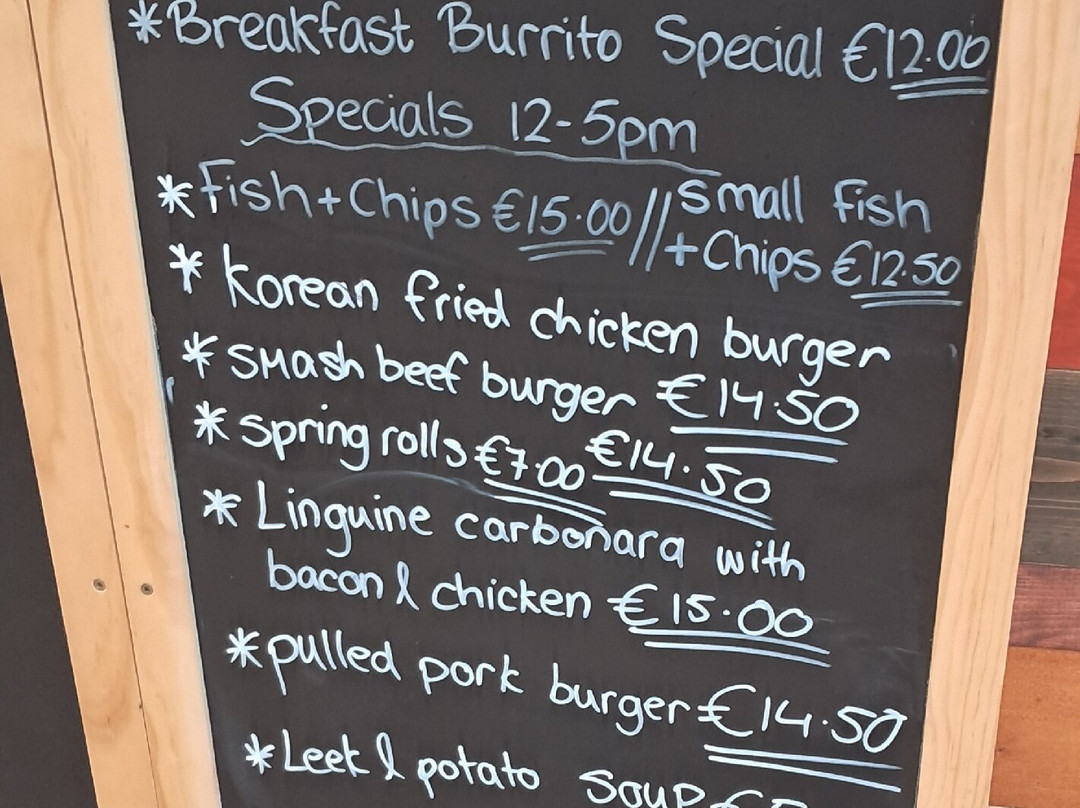 *Breakfast Burrito Special €12.00
Specials 12-5pm
*Fish+Chips €15.00//small fish
+Chips €12.50
*Korean fried chicken burger
€14.50
*smash beef burger
€14.50
*spring rolls €7.00
*Linguine carbonara with
bacon & chicken €15.00
*pulled pork burger €14.50
*Leek & potato soup €